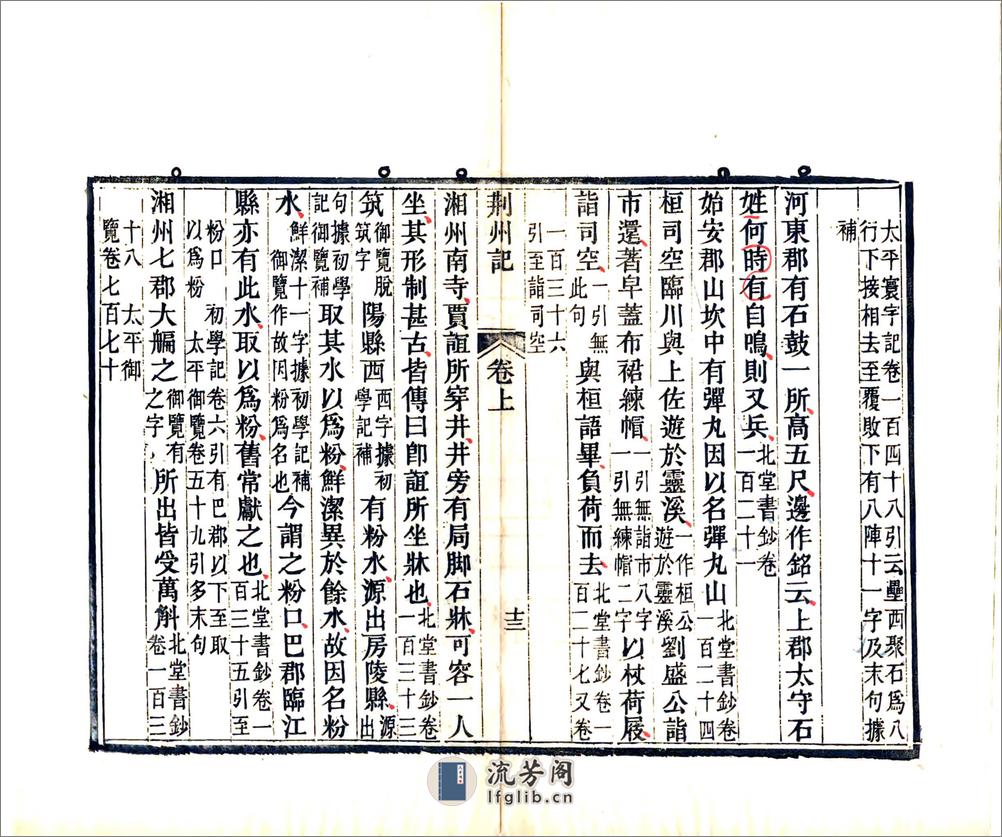 太平寰宇記卷一百四十八引云壘西聚石爲八
行下接相去至覆敗下有八陣十一字及末句據
補
河東郡有石鼓一所高五尺邊作銘云上郡太守石
姓何時有自鳴則又兵北堂書鈔卷一百二十一
始安郡山坎中有彈丸因以名彈丸山北堂書鈔卷一百二十四
桓司空臨川與上佐遊於靈溪一作桓公遊於靈溪劉盛公詣
市還著皁蓋布裙練帽一引無詣市八字一引無練帽二字以杖荷屐
詣司空一引無此句與桓語畢負荷而去北堂書鈔卷一百二十七又卷
一百三十六
引至詣司空
荆州記 卷上 十三
湘州南寺賈誼所穿井井旁有局脚石牀可容一人
坐其形制甚古皆傳曰卽誼所坐牀也北堂書鈔卷一百三十三
筑御覽脫筑字陽縣西西字據初學記補有粉水源出房陵縣源出
句據初學記御覽補取其水以爲粉鮮潔異於餘水故因名粉
水鮮潔十一字據初學記補御覽作故因粉爲名也今謂之粉口巴郡臨江
縣亦有此水取以爲粉舊常獻之也北堂書鈔卷一百三十五引至
粉口 初學記卷六引有巴郡以下至取
以爲粉 太平御覽卷五十九引多末句
湘州七郡大艑之御覽有之字所出皆受萬斛北堂書鈔卷一百三
十八 太平御
覽卷七百七十
流芳阁
lfglib.cn